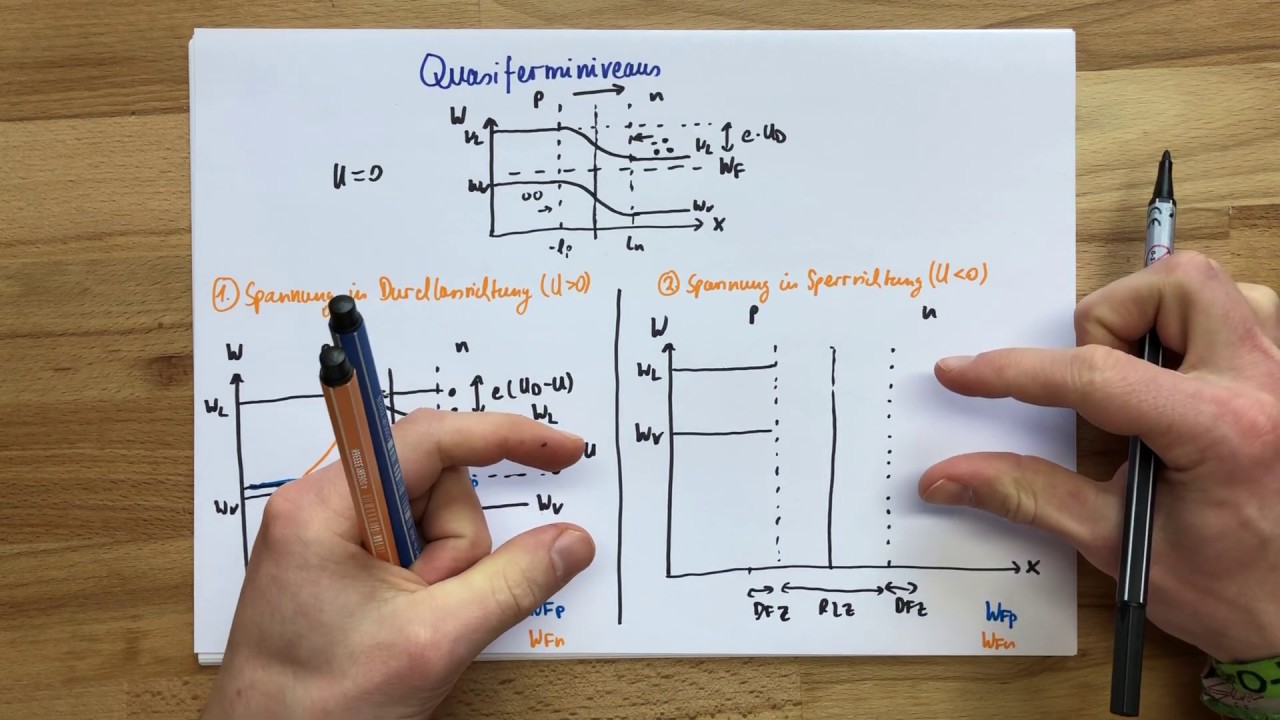 Quasiferminiveaus
p → n
W
WL
e·UD
WL
WF
U=0
Wv
Wv
x
-lp
ln
1.) Spannung in Durchlassrichtung (U>0)
W
n
e(UD-U)
WL
WL
Wv
Wv
WFp
WFn
2) Spannung in Sperrrichtung (U<0)
p
n
W
WL
Wv
x
DFZ
RLZ
DFZ
WFp
WFn